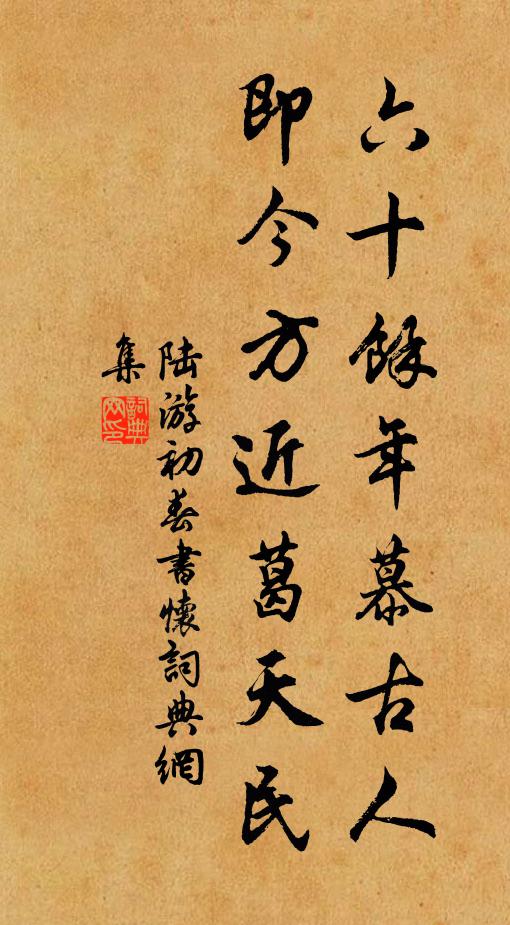 六十餘年慕古人
即今方近葛天民
陸游初春書懷詞典網
集
詞典網印